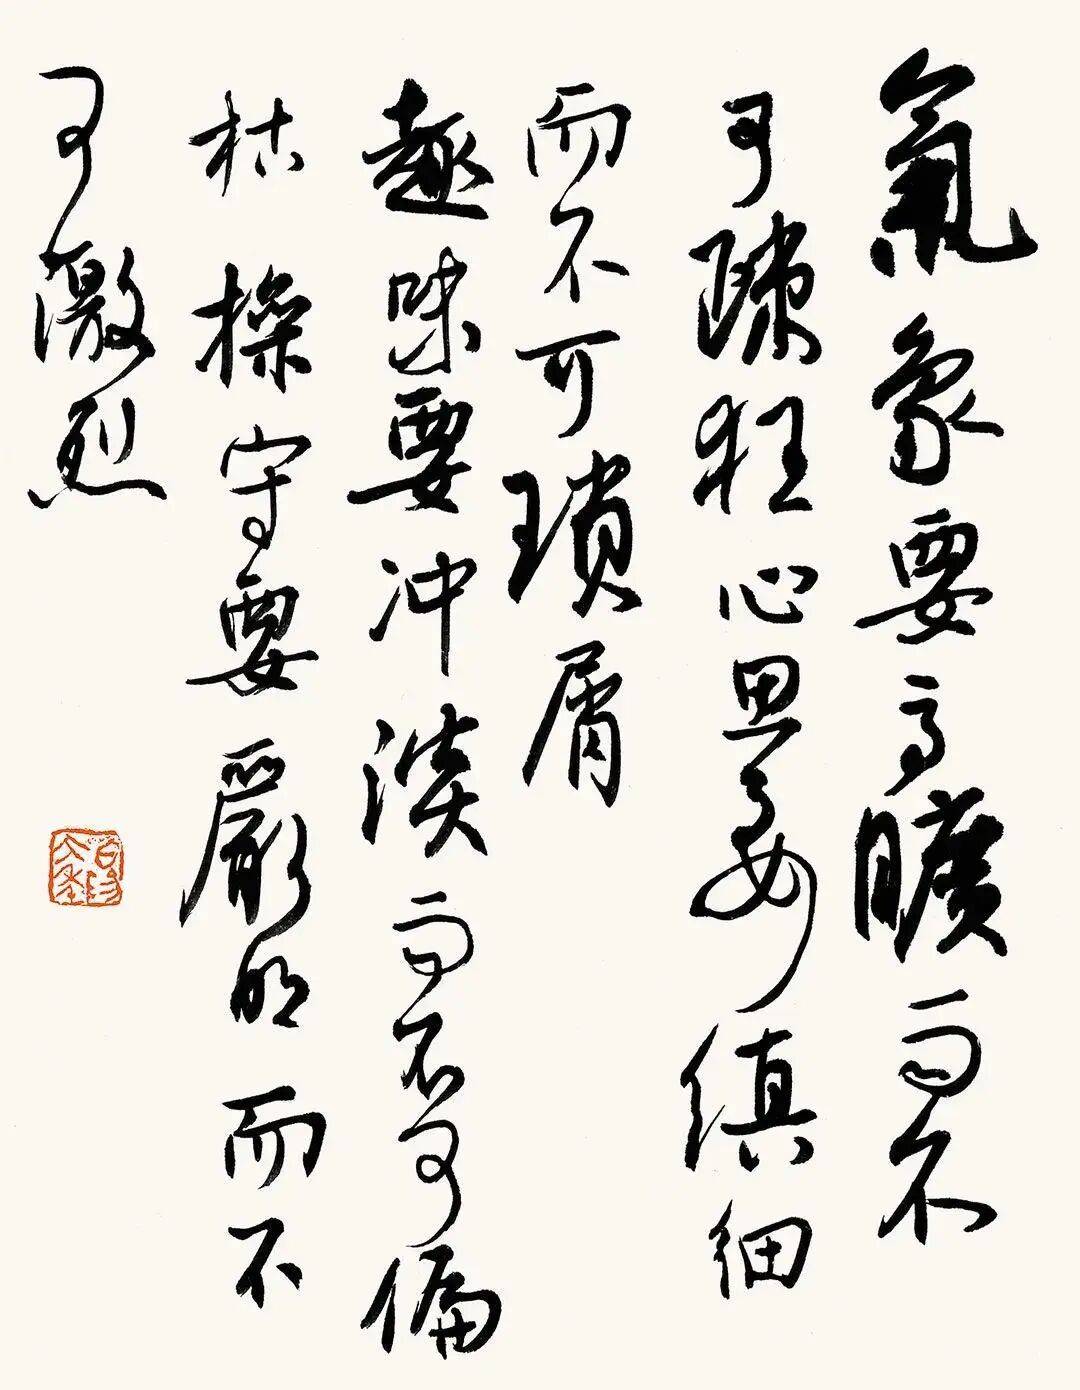 氣象要高曠而不
可疎狂心思要縝細
而不可瑣屑
趣味要冲淡而不可偏
枯操守要嚴明而不
可激烈